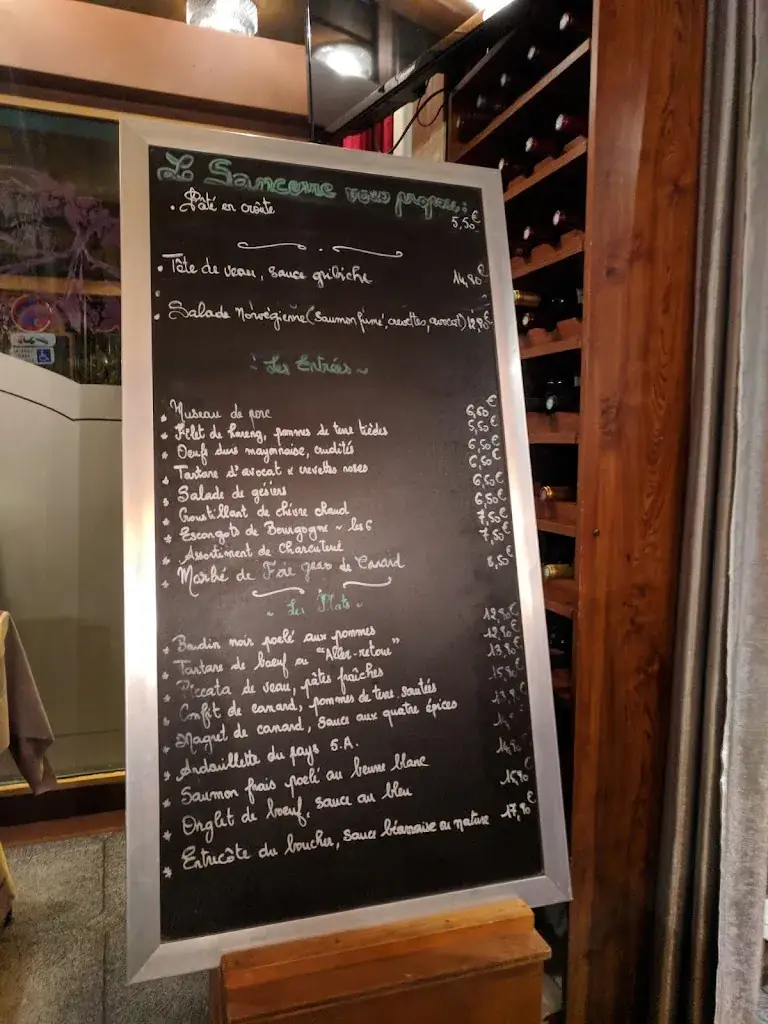 Le Sancerre vous propose:
• Pâté en croûte 5,50€
• Tête de veau, sauce gribiche 14,90€
• Salade Norvégienne (saumon fumé, crevettes, avocat) 12,90€
~ Les Entrées ~
• Museau de porc 6,60€
• Filet de hareng, pommes de terre tièdes 5,50€
• Oeufs durs mayonnaise, crudités 6,50€
• Tartare d'avocat & crevettes roses 6,50€
• Salade de gésiers 6,50€
• Croustillant de chèvre chaud 6,50€
• Escargots de Bourgogne ~ les 6 7,50€
• Assortiment de Charcuterie 7,50€
• Marbré de Foie gras de Canard 8,50€
~ Les Plats ~
• Boudin noir poêlé aux pommes 12,90€
• Tartare de boeuf ou "Aller-retour" 12,90€
• Piccata de veau, pâtes fraîches 13,90€
• Confit de canard, pommes de terre sautées 15,90€
• Magret de canard, sauce aux quatre épices 13,90€
• Andouillette du pays 5.A.
• Saumon frais poêlé au beurre blanc 14,90€
• Onglet de boeuf, sauce au bleu 15,90€
• Entrecôte du boucher, sauce béarnaise ou nature 17,90€